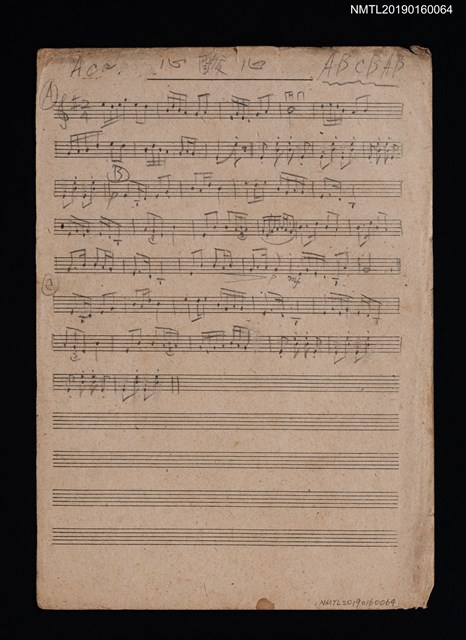 NMTL20190160064
Acc. 心酸心 ABCBAB
A
2
4
B
mf
C
NMTL20190160064